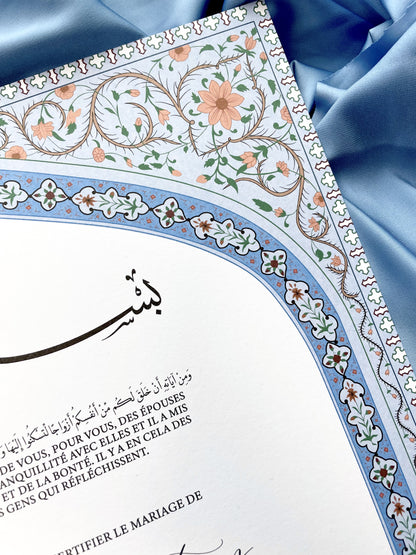 بس
وَمِنْ آيَاتِهِ أَنْ خَلَقَ لَكُم مِّنْ أَنفُسِكُمْ أَزْوَاجًا لِّتَسْكُنُوا إِلَيْهَا وَ
DE VOUS, POUR VOUS, DES ÉPOUSES
ANQUILLITÉ AVEC ELLES ET IL A MIS
ET DE LA BONTÉ. IL Y A EN CELA DES
S GENS QUI RÉFLÉCHISSENT.
ERTIFIER LE MARIAGE DE